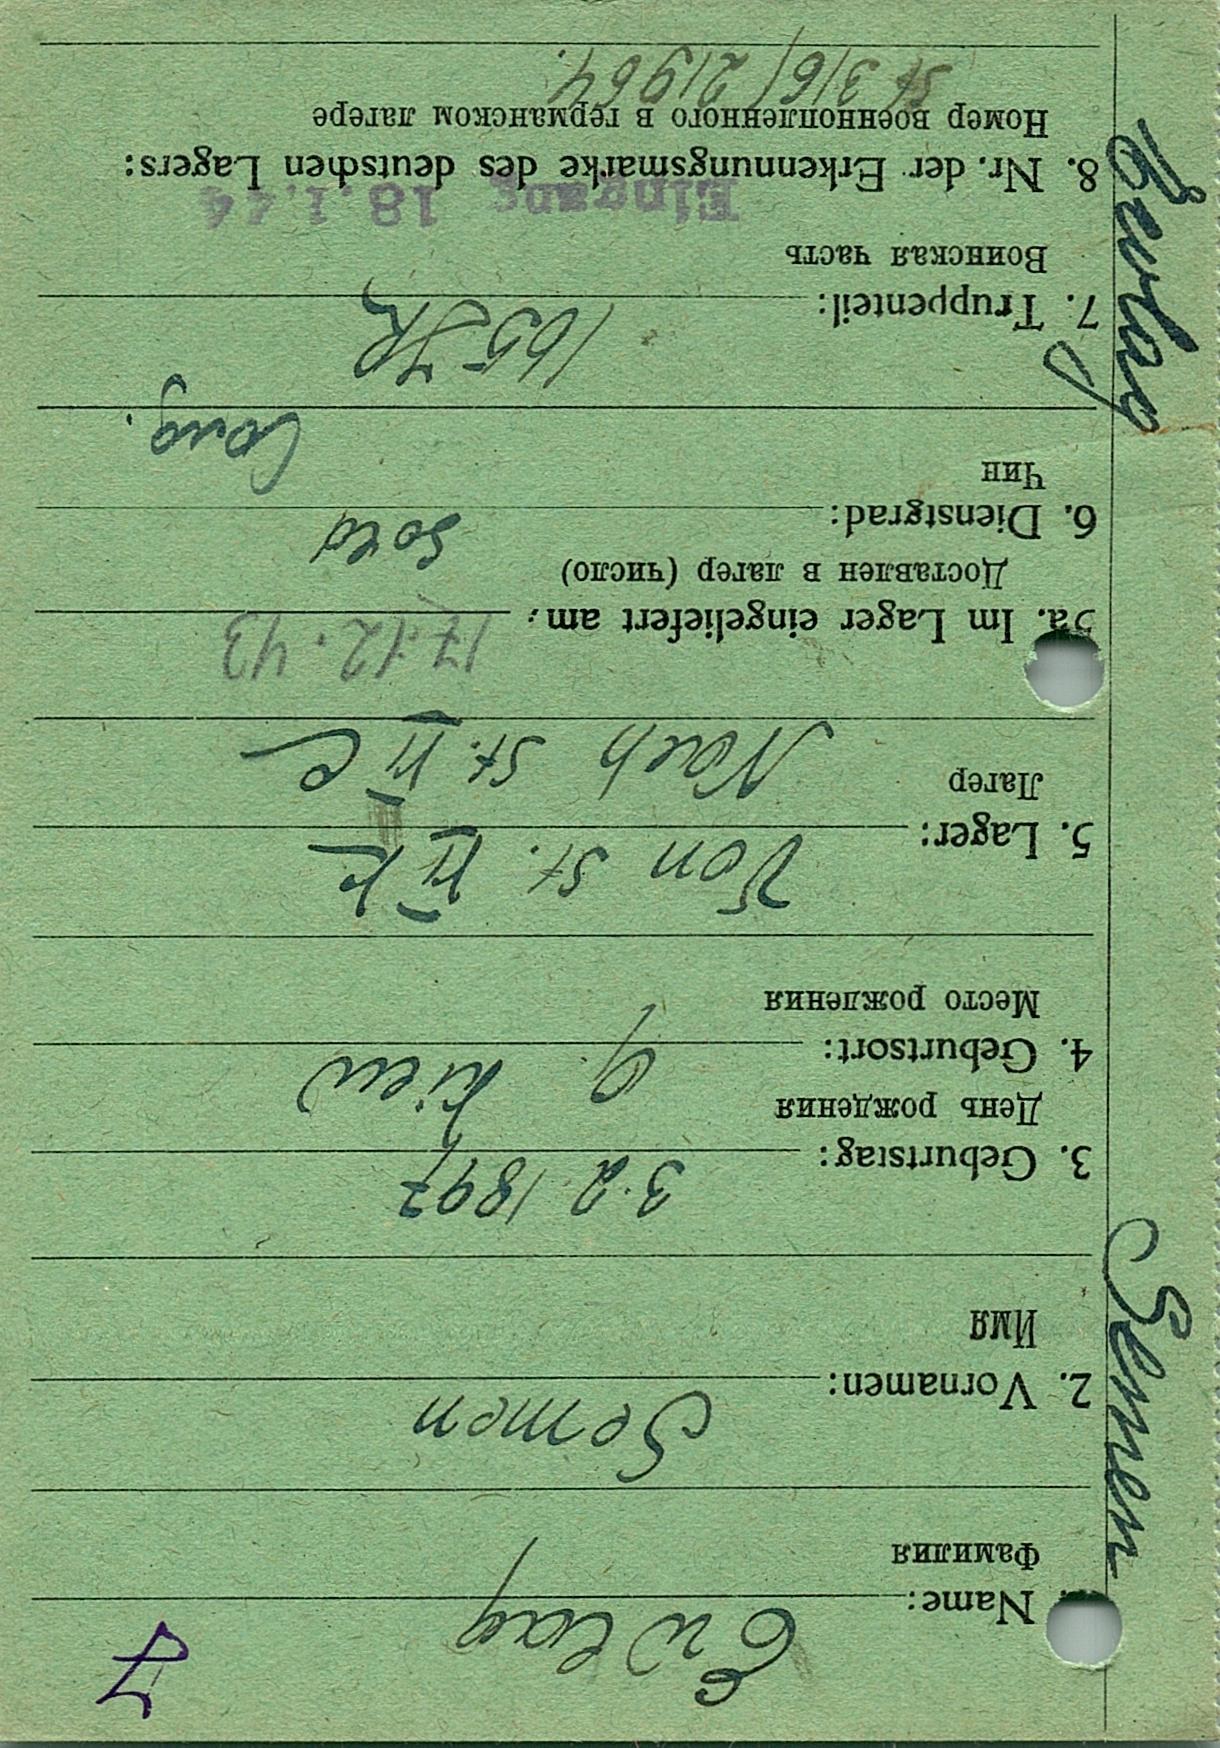 Name: Ewlag
Фамилия
2. Vornamen: Semen
Имя
3. Geburtstag: 3.2.1897
День рождения
4. Geburtsort: g Kiew
Место рождения
5. Lager: Von St.
Лагер Nach St. II C
5a. Im Lager eingeliefert am: 17.12.43
Доставлен в лагер (число)
6. Dienstgrad: Sold
Чин
7. Truppenteil: 165 JR
Воинская часть
Eingang 18.1.44
8. Nr. der Erkennungsmarke des deutschen Lagers:
Номер военнопленного в германском лагере
St 316/21964.
Semen